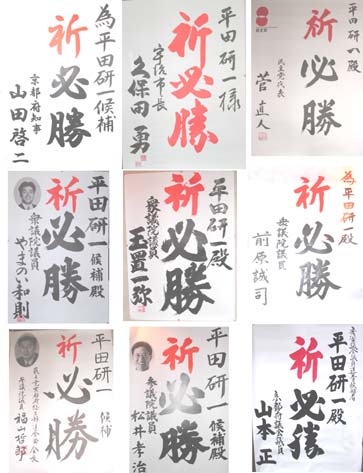 為平田研一候補
祈
必勝
京都府知事
山田啓二
平田研一様
祈必勝
宇治市長
久保田勇
平田研一殿
祈
必勝
民主党代表
菅直人
平田研一候補殿
祈
必勝
衆議院議員
やまのい和則
平田研一殿
祈
必勝
衆議院議員
玉置一弥
為平田研一殿
祈
必勝
衆議院議員
前原誠司
平田研一候補
祈
必勝
福山哲郎
平田研一候補殿
祈
必勝
参議院議員
松井孝治
平田研一殿
祈
必勝
京都府議会議員
山本正